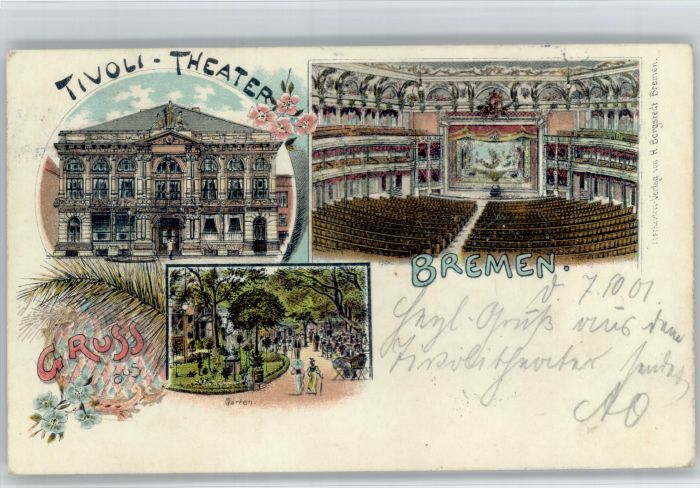 TIVOLI-THEATER
BREMEN.
GRUSS
aus
Garten.
Verlag von H. Borgstedt Bremen.
d. 7.10 01
Hrzl. Gruß aus dem
Tivolitheater sendet
AO